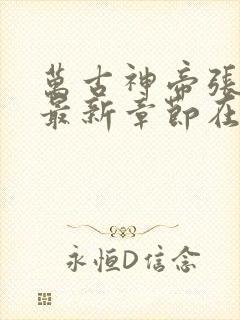 萬古神帝張
最新章節在
永恒D信念